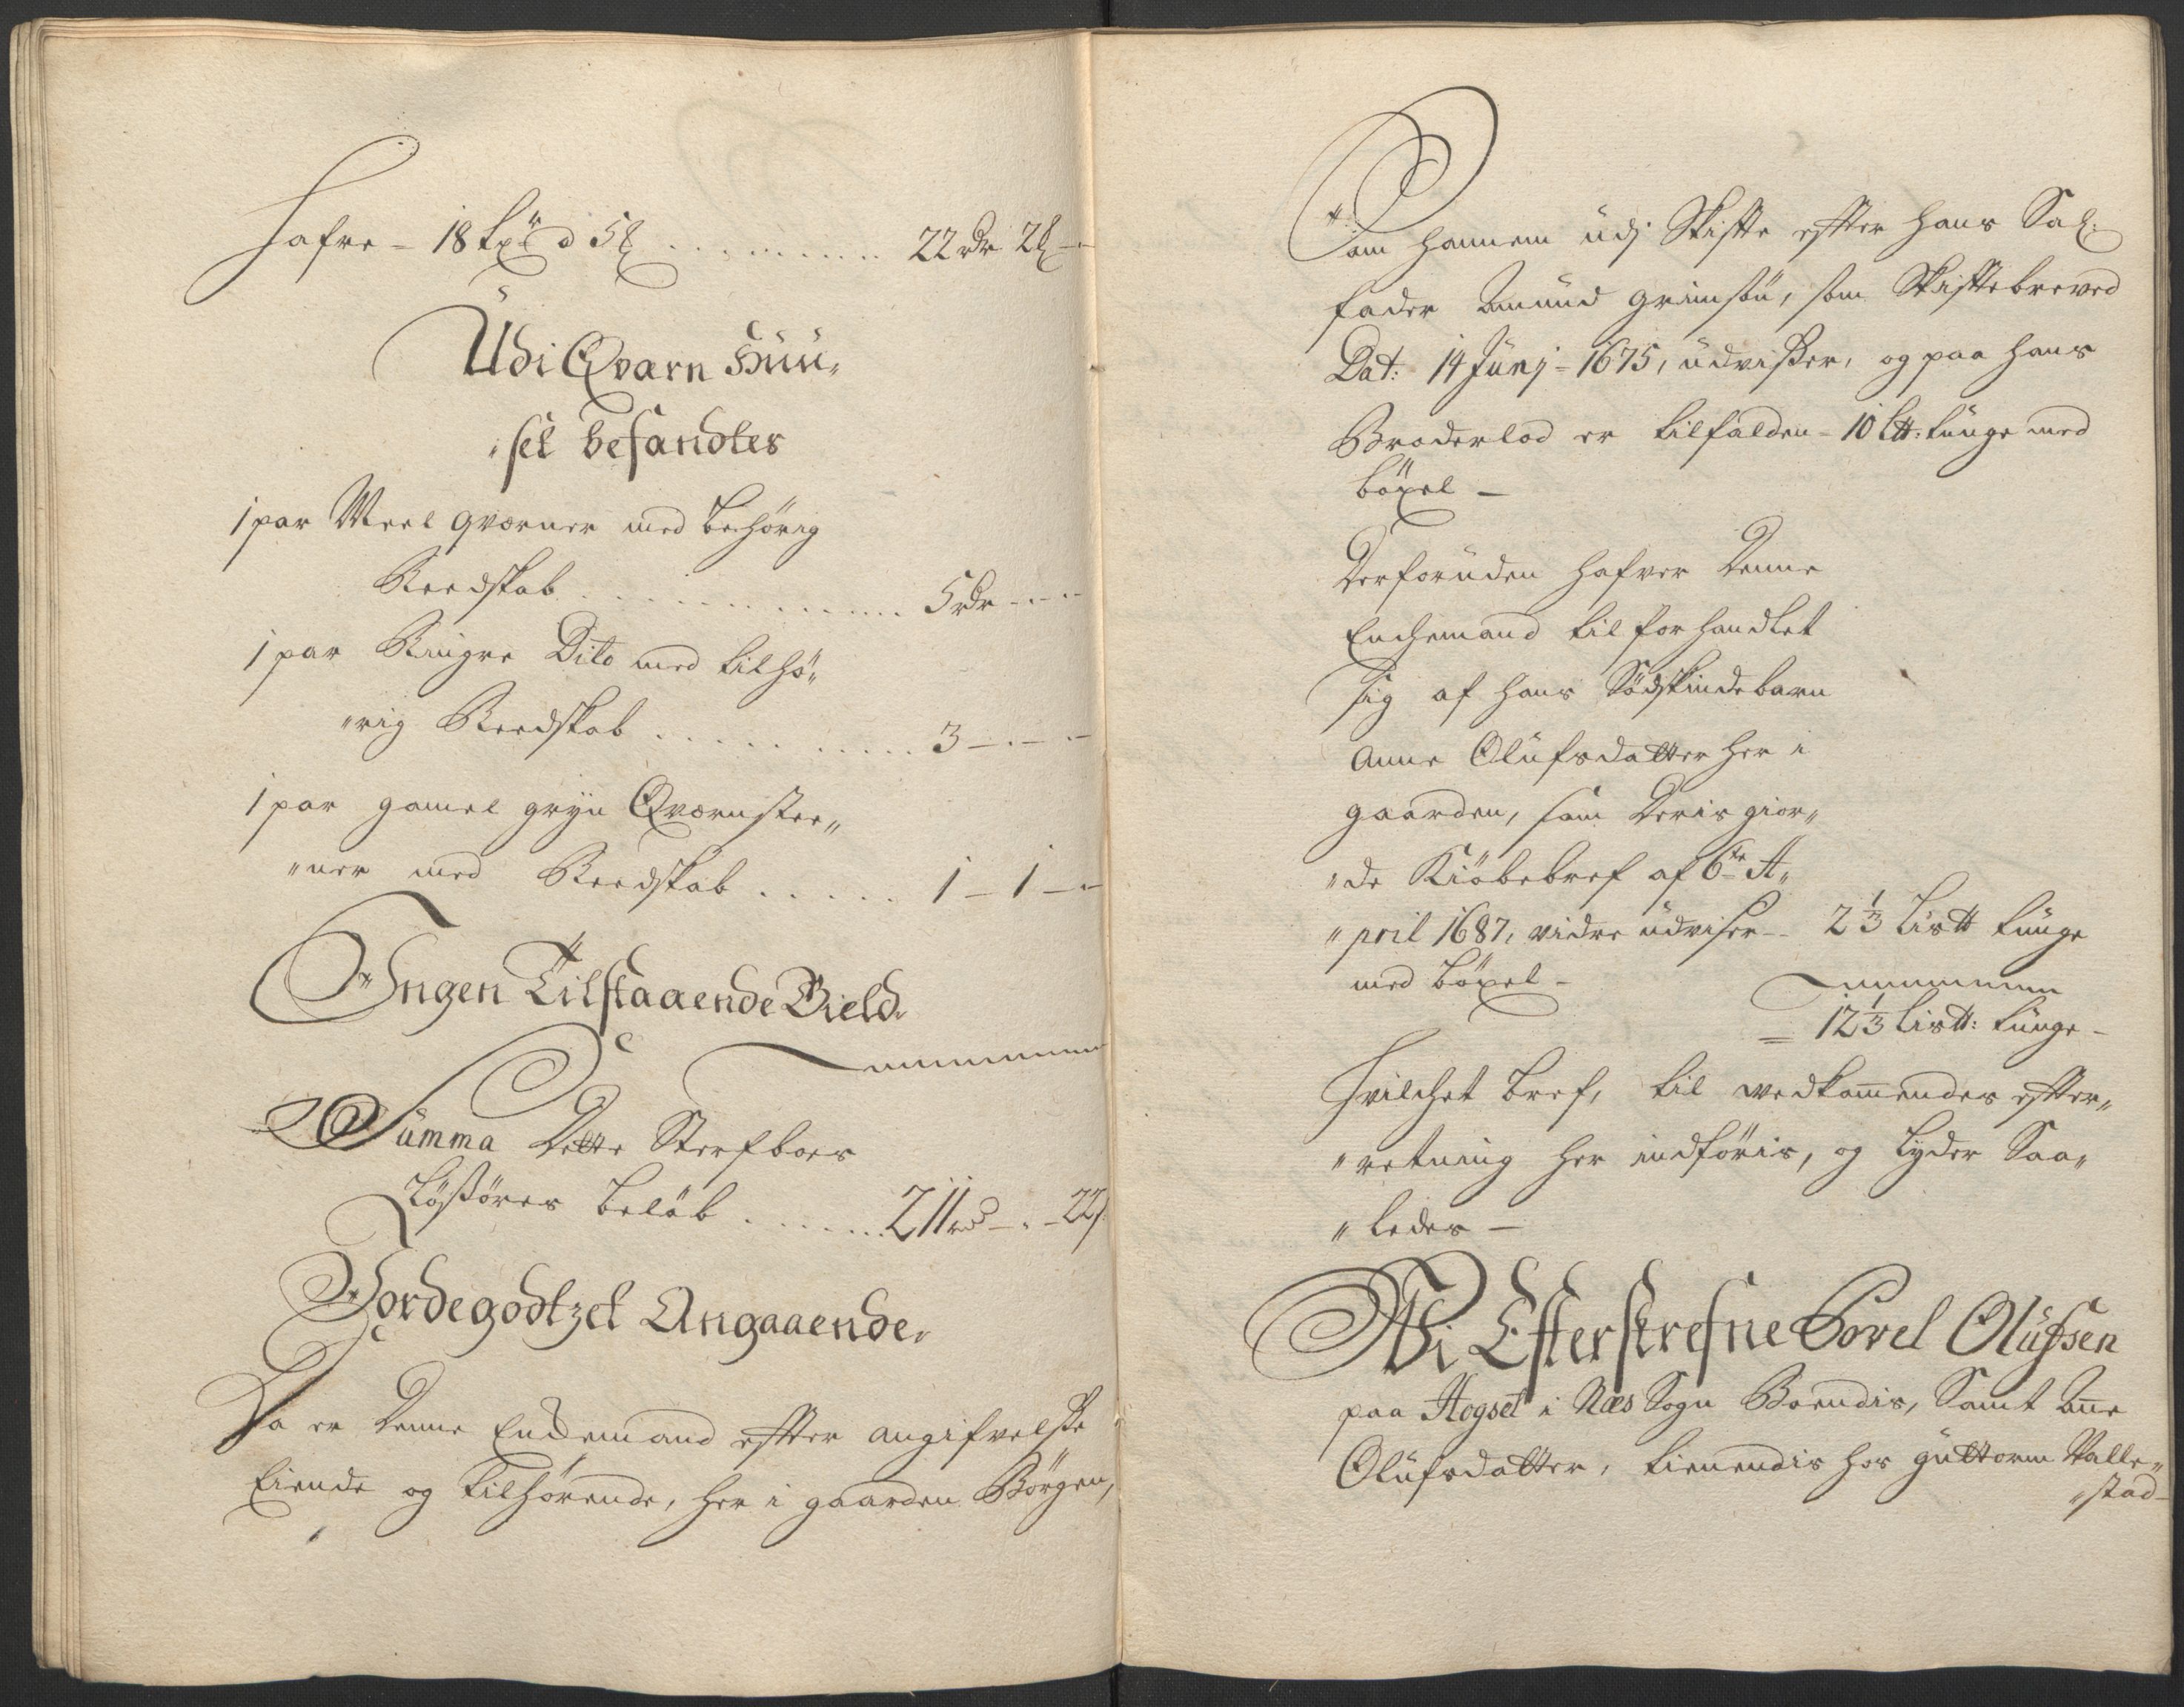 Hafre - 18 tr: à 5 ß . . . . . . . . . . 22 rdr 2 ß -
Udi Qværn Huu„
„set befandtes
1 par Meel Qværner med behörig
Reedskab . . . . . . . . . . . . . 5 rdr - . - -
1 par Ringre Dito med tilhö„
„rig Reedskab . . . . . . . . . . 3 - . - -
1 par gamel gryn Qværnstee„
„ner med Reedskab . . . . . . 1 - 1 - -
Ingen Tilstaaende Gield.
Summa Dette Sterfboes
Lösöres beløb . . . . . . 211 rd - . - 22 ß
Jordegodtzet Angaaende.
Da er denne Enchemand effter angifvelsse
Eiende og tilhørende, her i gaarden Börgen,
Som hannem udj Skiffte effter hans Sal:
fader Amund Grimstu, som Skifftebrevet
Dat: 14 Junj - 1675, udvisser, og paa hans
Broderlod er tilfalden - 10 L tt: tunge med
böxel -
Derforuden hafver denne
Enchemand tilforhandlet
sig af hans Södskindebarn
Anne Olufsdatter her i
gaarden, som deris gior„
„de Kiöbebref af 6te A„
„pril 1687, vidre udviser - - 2 1/3 Lis tt tunge
med böxel -
= 12 1/3 Lis tt: tunge -
Hvilchet bref, til vedkommendes effter„
„retning her indföris, og lyder Saa„
„ledes -
Wi Efterskrefne Povel Olufsen
paa Hogset i Næs Sogn Boendis, Samt Anne
Olufsdatter, tienendis hos Guttorm Valle„
„stad -